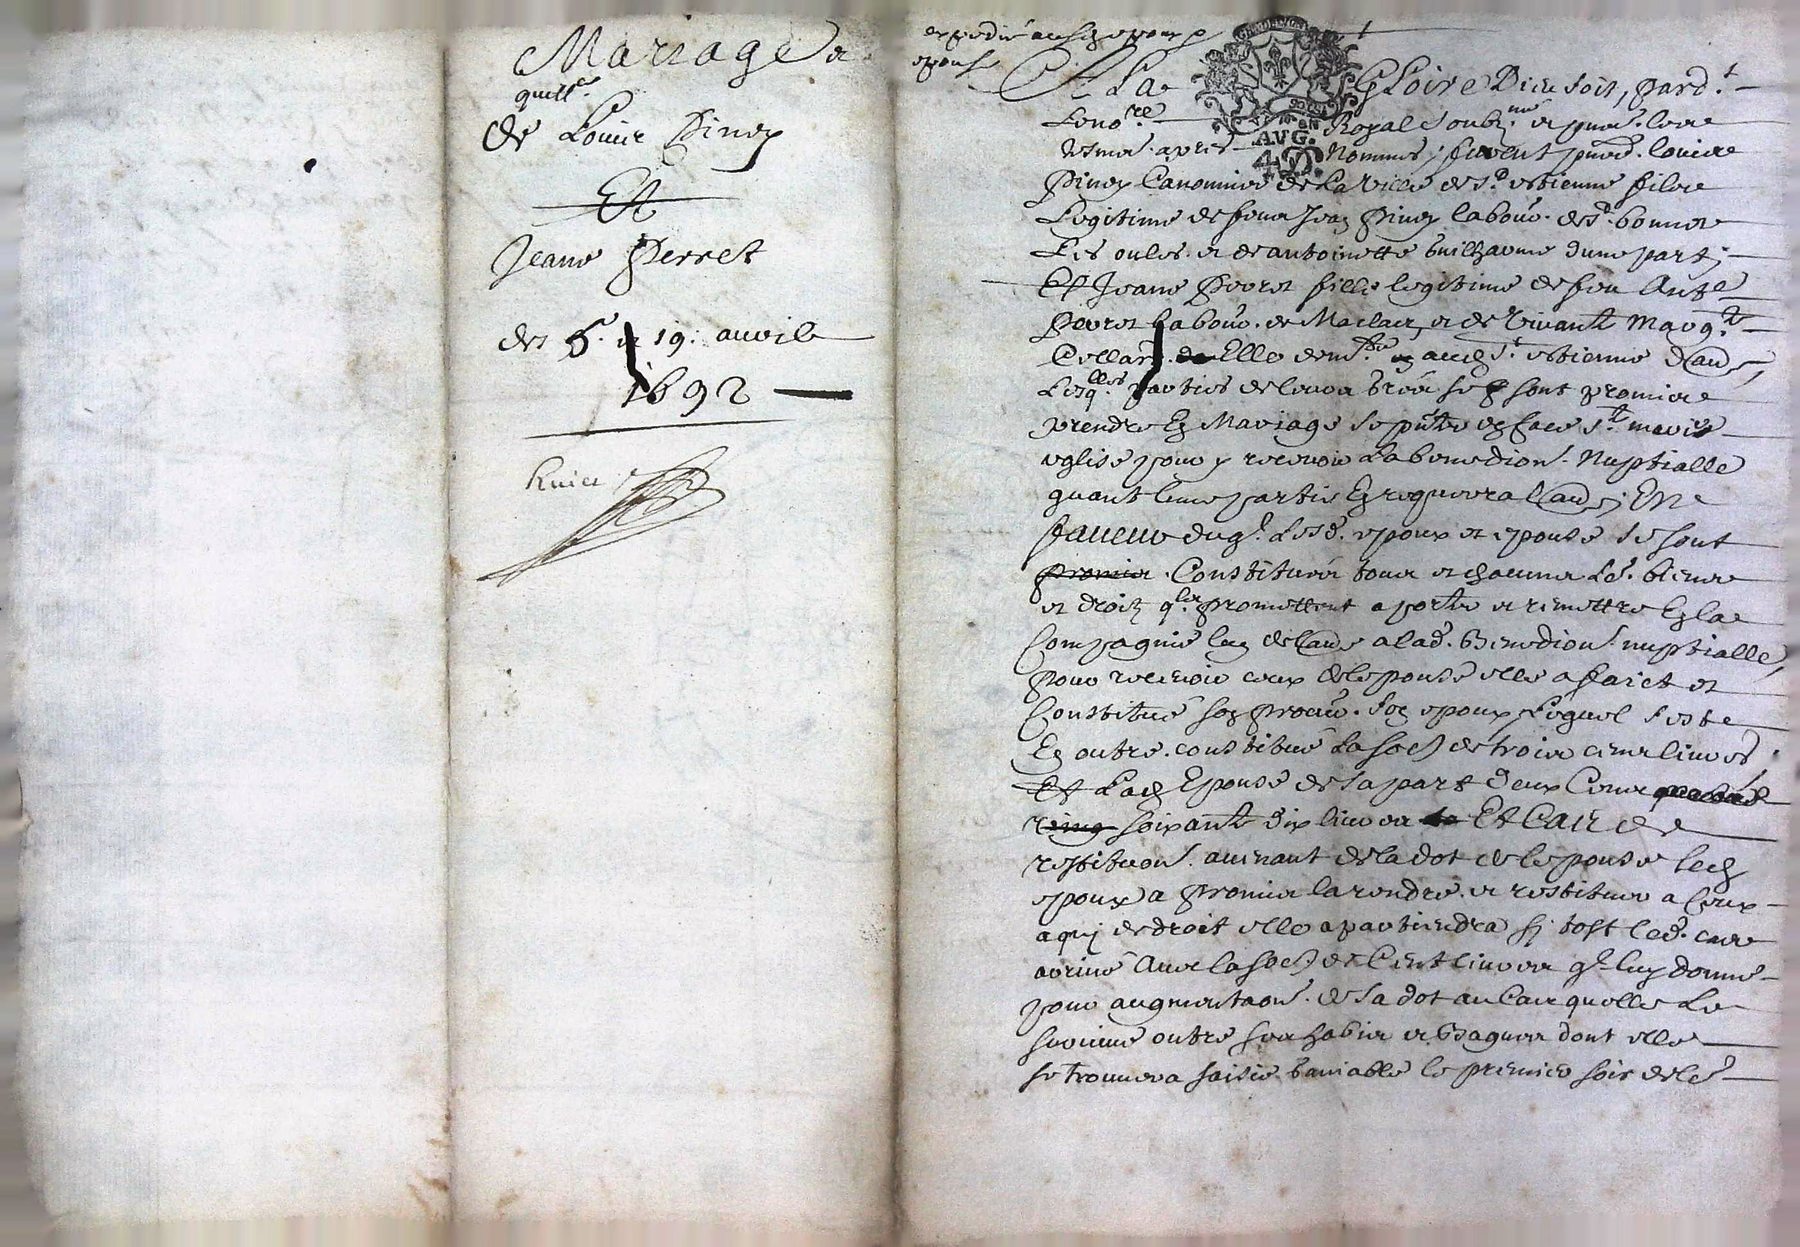 Mariage et
quitt.e
de Louis Piney
Et
Jeane Perret
des 6. et 19. auril
1692
expedié ausd epoux
epouse
A La Gloire Dieu soit, pard.t
Le no.re Royal soubz.né et pnts. les
tesmoi. apres Nommes, furent pnts. Louis
Piney Canonnier de la Ville de S.t estienne fils
Legitime de feu Jean Piney labou.r de S.t bonnet
Les oules et de antoinette Guilhaume dune part;
Et Jeane Perret fille legitime de feu
Perret labou.r de et de Vivante Marg.te
Elle S.t estienne dau.e
Lesq.lles parties de leur gré se sont promis
prendre En Mariage se pnter en face S.te mere
eglise pour y receuoir La benediction Nuptialle
quant lune partie En requerera lau.e; En
faueur duq.l Lesd. epoux et epouse se sont
promis Constitués tous et chacuns Le.s biens
et droitz q.ls promettent aporter et remettre En la
Compagnie lun de lau.e a lad. Benediction nuptialle,
pour receuoir ceux de lepouse elle a faict et
Constitué son procu.r son epoux Lequel sest
En outre constitué La so.e de trois cens liures,
Et Lad Epouse de sa part deux Cens
soixante dix liures Et Cas de
restitution auenant de la dot de lepouse led
epoux a promis la rendre et restituer a Ceux
a quj de droit elle apartiendra sj tost led. cas
ariué Auec la so.e de Cent liures q.l luy donne
pour augmentaon. de sa dot au Cas quelle Le
suruiue outre ses habis et Bagues dont elle
se trouuera saisie le premier soir de le